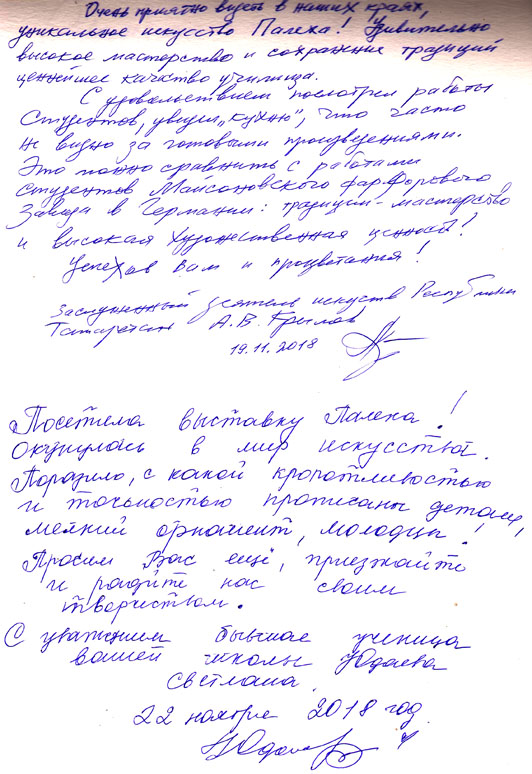 Очень приятно видеть в наших краях,
уникальное искусство Палеха! Удивительно
высокое мастерство и сохранение традиций
ценнейшее качество училища.
С удовольствием посмотрел работы
студентов, увидел „кухню", что часто
не видно за готовыми произведениями.
Это можно сравнить с работами
студентов Майсоновского фарфорового
завода в Германии: традиции - мастерство
и высокая художественная ценность!
Успехов Вам и процветания!
Заслуженный деятель искусств Республики
Татарстан А.В. Крылов
19.11.2018
Посетила выставку Палеха!
Окунулась в мир искусства.
Поразило, с какой кропотливостью
и точностью прописаны детали,
мелкий орнамент, молодцы!
Просим Вас ещё, приезжайте
и радуйте нас своим
творчеством.
С уважением бывшая ученица
вашей школы Юдаева
Светлана.
22 ноября 2018 год.